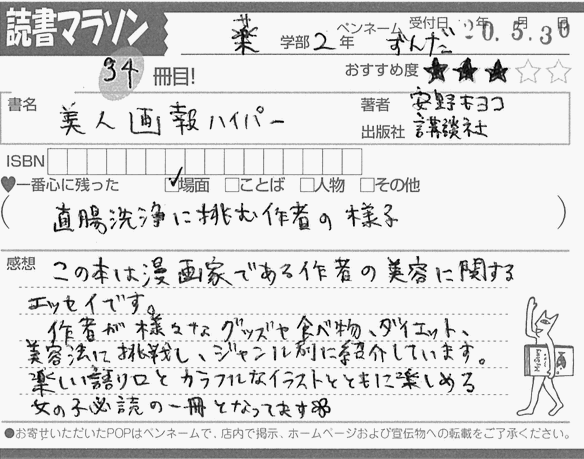 読書マラソン
薬 学部 2 年 ペンネーム ずんだ 受付日 年 月 日 20.5.30
34 冊目! おすすめ度 ★★★☆☆
書名 美人画報ハイパー
著者 安野モヨコ
出版社 講談社
ISBN
♥一番心に残った ☑場面 □ことば □人物 □その他
(直腸洗浄に挑む作者の様子)
感想 この本は漫画家である作者の美容に関する
エッセイです。
作者が様々なグッズや食べ物、ダイエット、
美容法に挑戦し、ジャンル別に紹介しています。
楽しい語り口とカラフルなイラストとともに楽しめる
女の子必読の一冊となってます
●お寄せいただいたPOPはペンネームで、店内で掲示、ホームページおよび宣伝物への転載をご了承ください。